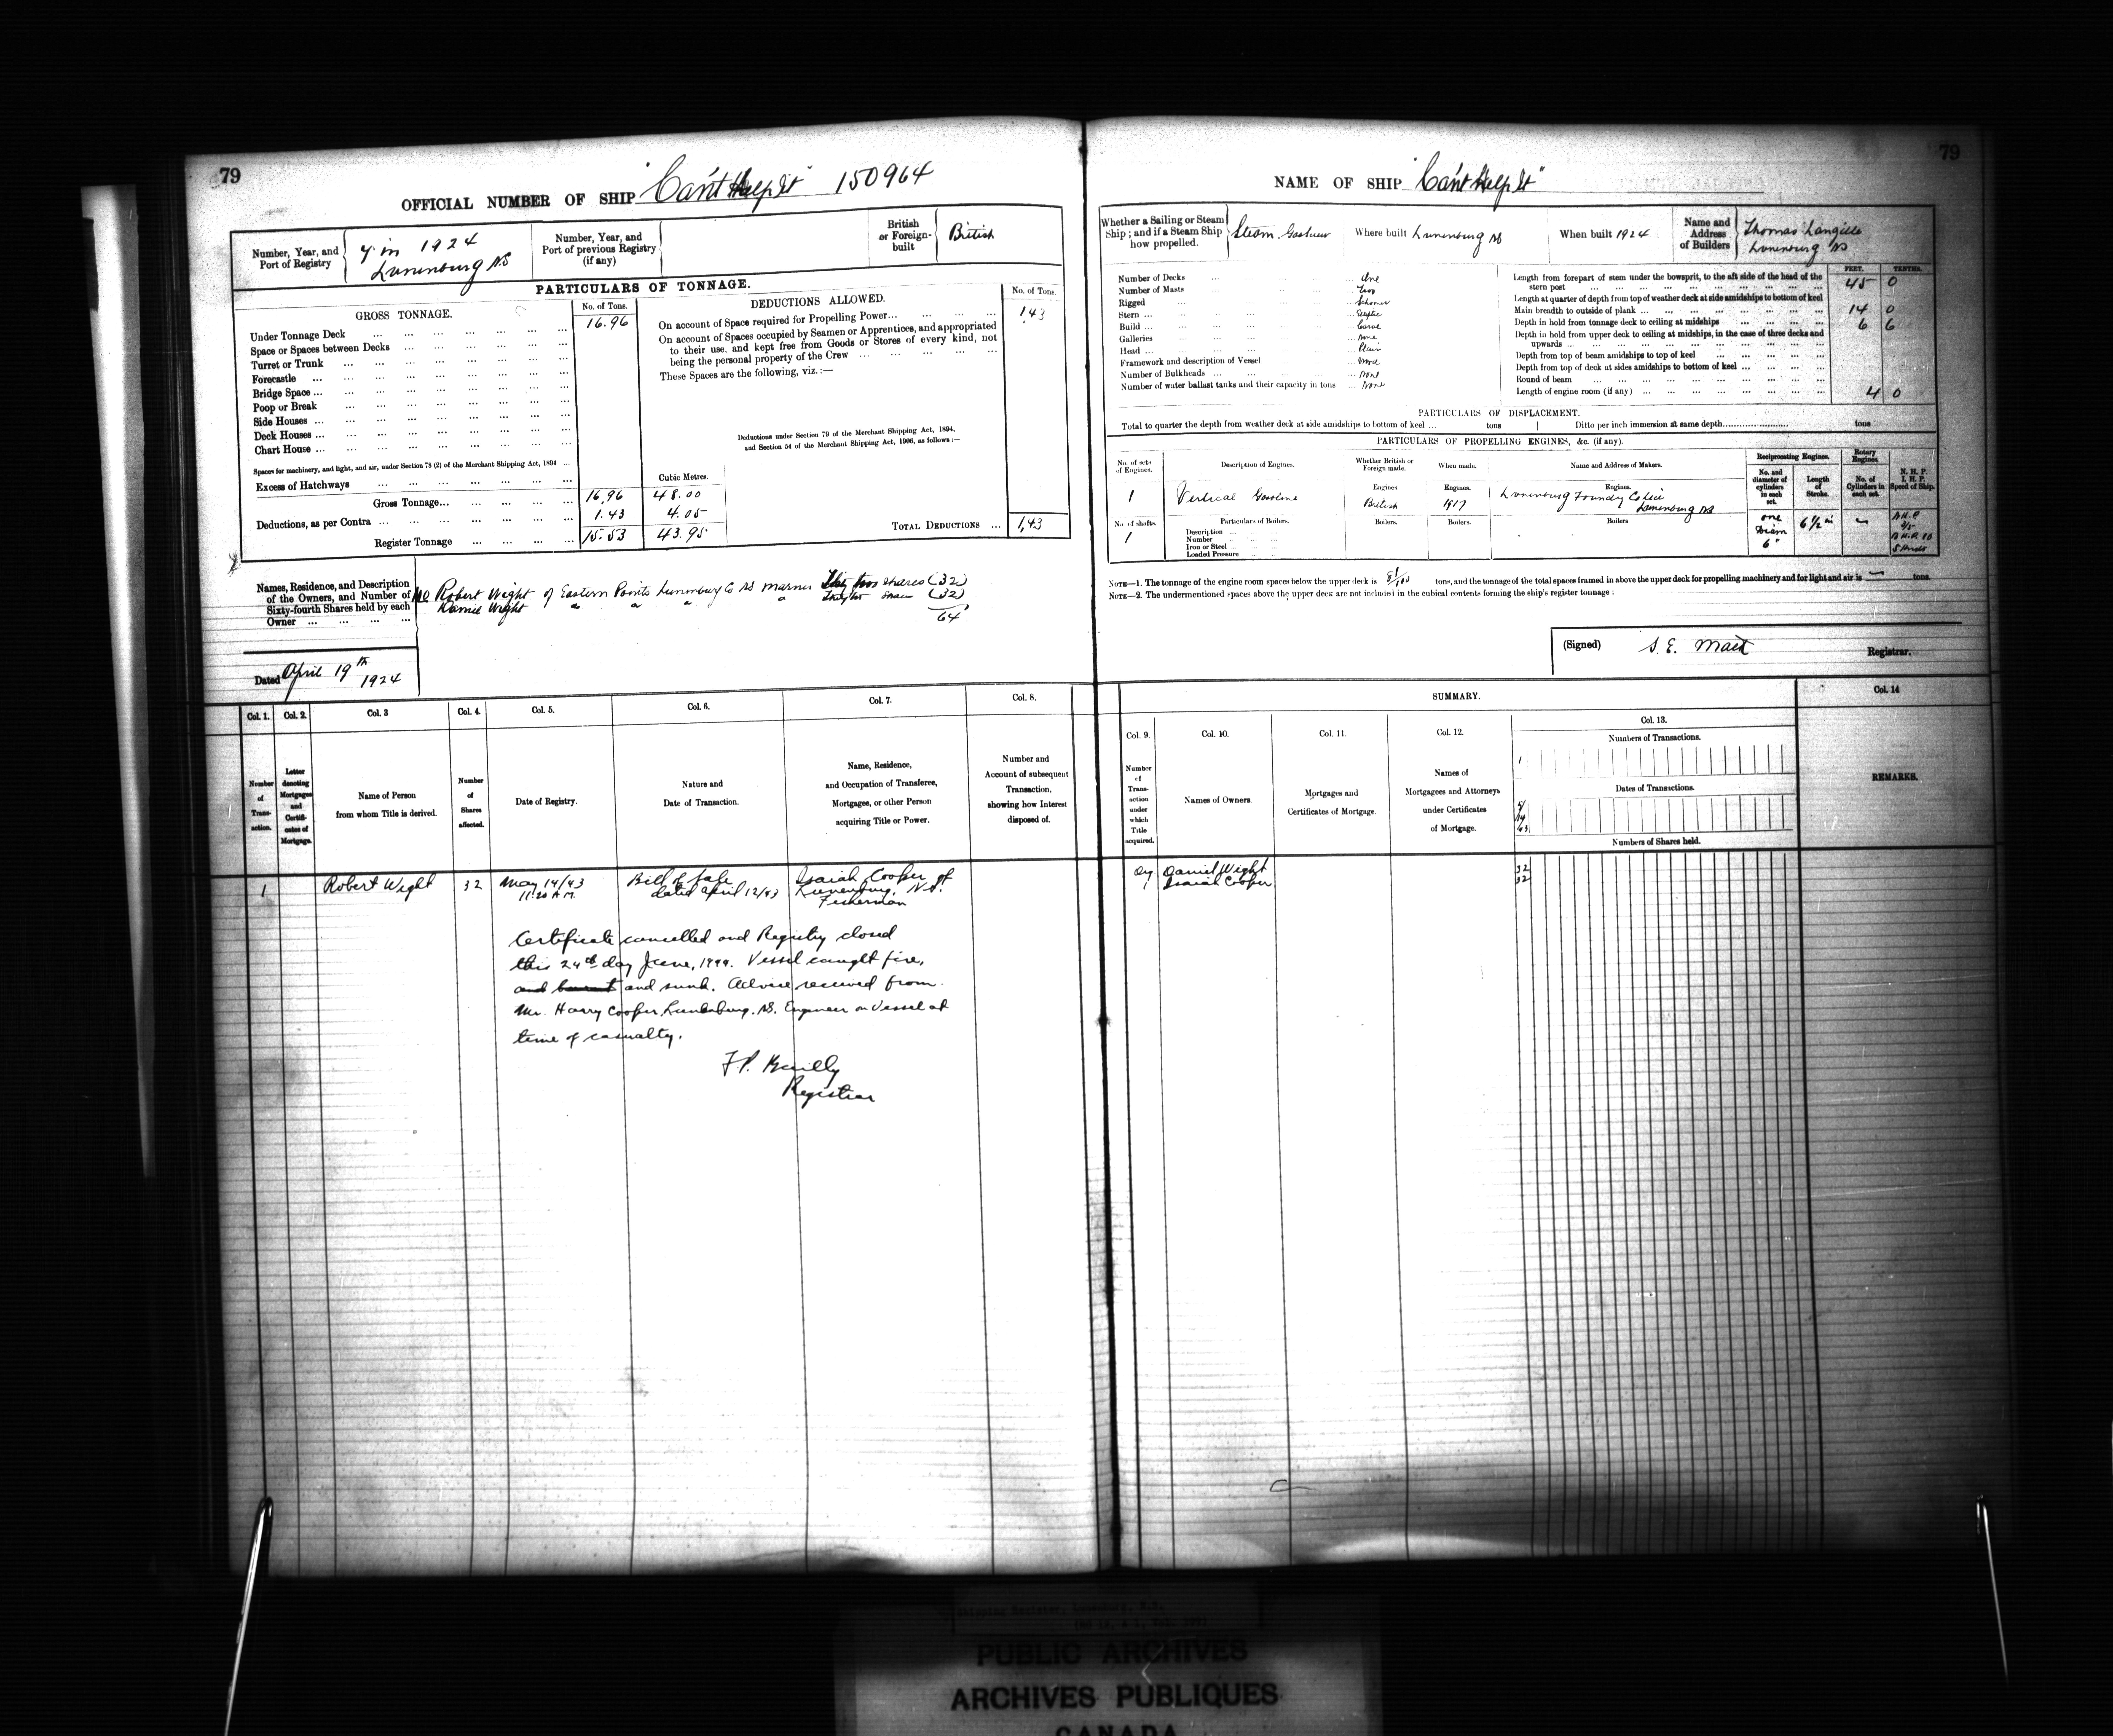 79
OFFICIAL NUMBER OF SHIP "Can't Help It" 150964
Number, Year, and Port of Registry
4 in 1924
Lunenburg N.S
Number, Year, and Port of previous Registry (if any)
British or Foreign-built
British
PARTICULARS OF TONNAGE.
GROSS TONNAGE.
No. of Tons.
DEDUCTIONS ALLOWED.
No. of Tons.
Under Tonnage Deck ... 16.96
Space or Spaces between Decks ...
Turret or Trunk ...
Forecastle ...
Bridge Space ...
Poop or Break ...
Side Houses ...
Deck Houses ...
Chart House ...
Spaces for machinery, and light, and air, under Section 78 (2) of the Merchant Shipping Act, 1894 ...
Excess of Hatchways ...
Cubic Metres.
Gross Tonnage... 16.96 48.00
Deductions, as per Contra ... 1.43 4.05
Register Tonnage ... 15.53 43.95
On account of Space required for Propelling Power... 1.43
On account of Spaces occupied by Seamen or Apprentices, and appropriated
to their use, and kept free from Goods or Stores of every kind, not
being the personal property of the Crew ...
These Spaces are the following, viz. :—
Deductions under Section 79 of the Merchant Shipping Act, 1894,
and Section 54 of the Merchant Shipping Act, 1906, as follows :—
TOTAL DEDUCTIONS ... 1.43
Names, Residence, and Description of the Owners, and Number of Sixty-fourth Shares held by each Owner ...
Robert Wight of Eastern Points Lunenburg Co NS Mariner Thirty two shares (32)
Daniel Wight " " " " (32)
64
Dated April 19th 1924
Col. 1. Col. 2. Col. 3 Col. 4. Col. 5. Col. 6. Col. 7. Col. 8.
Number of Transaction.
Letter denoting Mortgages and Certificates of Mortgage.
Name of Person from whom Title is derived.
Number of Shares affected.
Date of Registry.
Nature and Date of Transaction.
Name, Residence, and Occupation of Transferee, Mortgagee, or other Person acquiring Title or Power.
Number and Account of subsequent Transaction, showing how Interest disposed of.
1 Robert Wight 32 May 14/43 11:20 A.M. Bill of Sale dated April 12/43 Isaiah Cooper of Lunenburg, N.S. Fisherman
Certificate cancelled and Registry closed
this 24th day June, 1944. Vessel caught fire,
and burnt and sunk. Advice received from
Mr. Harry Cooper, Lunenburg, N.S. Engineer on vessel at
time of casualty.
Registrar
79
NAME OF SHIP "Can't Help It"
Whether a Sailing or Steam Ship ; and if a Steam Ship how propelled.
Where built Lunenburg NS
When built 1924
Name and Address of Builders
Thomas Langille
Lunenburg NS
Number of Decks ... One
Number of Masts ... Two
Rigged ... Schooner
Stern ...
Build ... Carvel
Galleries ... None
Head ... Plain
Framework and description of Vessel ... Wood
Number of Bulkheads ... None
Number of water ballast tanks and their capacity in tons ... None
FEET. TENTHS.
Length from forepart of stem under the bowsprit, to the aft side of the head of the
stern post ... 45 0
Length at quarter of depth from top of weather deck at side amidships to bottom of keel
Main breadth to outside of plank ... 14 0
Depth in hold from tonnage deck to ceiling at midships ... 6 6
Depth in hold from upper deck to ceiling at midships, in the case of three decks and
upwards ...
Depth from top of beam amidships to top of keel ...
Depth from top of deck at sides amidships to bottom of keel ...
Round of beam ...
Length of engine room (if any) ... 4 0
PARTICULARS OF DISPLACEMENT.
Total to quarter the depth from weather deck at side amidships to bottom of keel ... tons Ditto per inch immersion at same depth........ tons
PARTICULARS OF PROPELLING ENGINES, &c. (if any).
No. of sets of Engines.
Description of Engines.
Whether British or Foreign made.
When made.
Name and Address of Makers.
Reciprocating Engines.
Rotary Engines.
No. and diameter of cylinders in each set.
Length of Stroke.
No. of Cylinders in each set.
N. H. P. I. H. P. Speed of Ship.
Engines. Engines. Engines.
1 Vertical Gasoline British 1917 Lunenburg Foundry Co Ltd
Lunenburg NS
No of shafts. 1
Particulars of Boilers.
Description ...
Number ...
Iron or Steel ...
Loaded Pressure ...
Boilers. Boilers. Boilers
one Diam 6" 6 1/2 in
NOTE—1. The tonnage of the engine room spaces below the upper deck is 81/100 tons, and the tonnage of the total spaces framed in above the upper deck for propelling machinery and for light and air is — tons.
NOTE—2. The undermentioned spaces above the upper deck are not included in the cubical contents forming the ship's register tonnage :
(Signed) Registrar.
SUMMARY.
Col. 9. Col. 10. Col. 11. Col. 12. Col. 13. Col. 14
Number of Transaction under which Title acquired.
Names of Owners
Mortgages and Certificates of Mortgage.
Names of Mortgagees and Attorneys under Certificates of Mortgage.
Numbers of Transactions.
1
Dates of Transactions.
Numbers of Shares held.
REMARKS.
Daniel Wight 32
1 Isaiah Cooper 32
PUBLIC ARCHIVES
ARCHIVES PUBLIQUES
CANADA